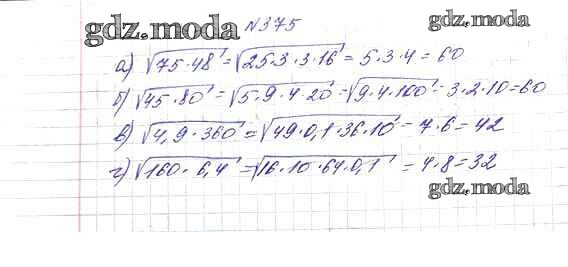 gdz.moda
gdz.moda
№375
а) √75·48 = √25·3·3·16 = 5·3·4 = 60
б) √45·80 = √5·9·4·20 = √9·4·100 = 3·2·10 = 60
в) √4,9·360 = √49·0,1·36·10 = 7·6 = 42
г) √160·6,4 = √16·10·64·0,1 = 4·8 = 32
gdz.moda
gdz.moda